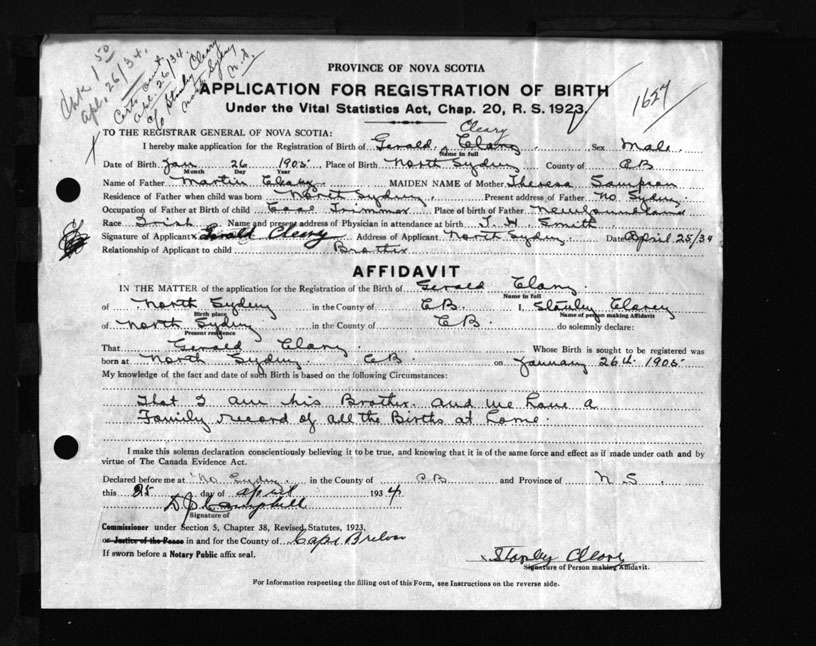 Chk 1.50
Apl. 26/34.
Certs sent
Apl. 26/34.
c/o Stanley Cleary
North Sydney
N.S.
1627
PROVINCE OF NOVA SCOTIA
APPLICATION FOR REGISTRATION OF BIRTH
Under the Vital Statistics Act, Chap. 20, R. S. 1923
TO THE REGISTRAR GENERAL OF NOVA SCOTIA:
Cleary
I hereby make application for the Registration of Birth of Gerald Clary Sex Male
Name in full
Date of Birth Jan 26 1905 Place of Birth North Sydney County of CB
Month Day Year
Name of Father Martin Cleary MAIDEN NAME of Mother Theresa Sampson
Residence of Father when child was born North Sydney Present address of Father No. Sydney
Occupation of Father at Birth of child Coal Trimmer Place of birth of Father Newfoundland
Race Irish Name and present address of Physician in attendance at birth J. H. Smith
Signature of Applicant x Gerald Cleary Address of Applicant North Sydney Date April 25/34
Relationship of Applicant to child Brother
AFFIDAVIT
IN THE MATTER of the application for the Registration of the Birth of Gerald Clary
Name in full
of North Sydney in the County of CB. I, Stanley Clarey
Birth place Name of person making Affidavit
of North Sydney in the County of CB. do solemnly declare:
Present residence
That Gerald Clary Whose Birth is sought to be registered was
born at North Sydney CB. on January 26th 1905
My knowledge of the fact and date of such Birth is based on the following Circumstances:
That I am his Brother. and we have a
Family record of all the Births at home.
I make this solemn declaration conscientiously believing it to be true, and knowing that it is of the same force and effect as if made under oath and by
virtue of The Canada Evidence Act.
Declared before me at No. Sydney in the County of C.B. and Province of N.S.
this 25 day of April 1934
D J Campbell
Signature of
Commissioner under Section 5, Chapter 38, Revised Statutes, 1923,
or Justice of the Peace in and for the County of Cape Breton
If sworn before a Notary Public affix seal.
x Stanley Cleary
Signature of Person making Affidavit.
For Information respecting the filling out of this Form, see Instructions on the reverse side.